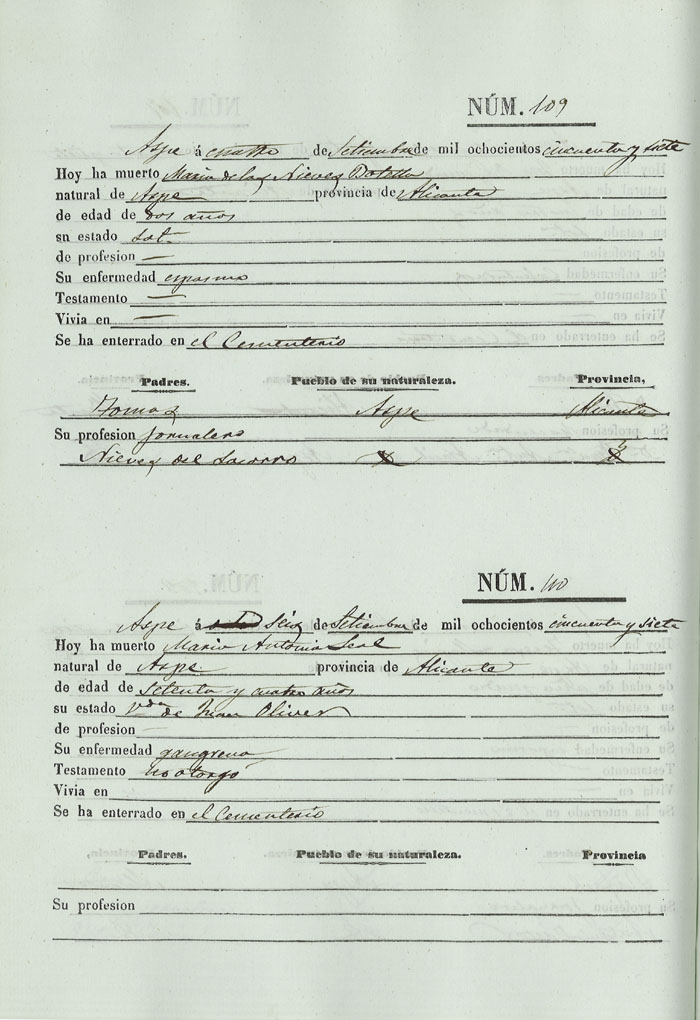 NÚM. 109
Aspe á cuatro de Setiembre de mil ochocientos cincuenta y siete
Hoy ha muerto Maria de las Nieves Botella
natural de Aspe provincia de Alicante
de edad de dos años
su estado Solt.
de profesion —
Su enfermedad espasmo
Testamento —
Vivia en —
Se ha enterrado en el Cementerio
Padres. Pueblo de su naturaleza. Provincia,
Tomas Aspe Alicante
Su profesion jornalero
Nieves del Socorro
NÚM. 110
Aspe á seis de Setiembre de mil ochocientos cincuenta y siete
Hoy ha muerto Maria Antonia
natural de Aspe. provincia de Alicante
de edad de setenta y cuatro años
su estado Vda de Juan Oliver
de profesion —
Su enfermedad gangrena
Testamento no otorgó
Vivia en —
Se ha enterrado en el Cementerio
Padres. Pueblo de su naturaleza. Provincia
Su profesion